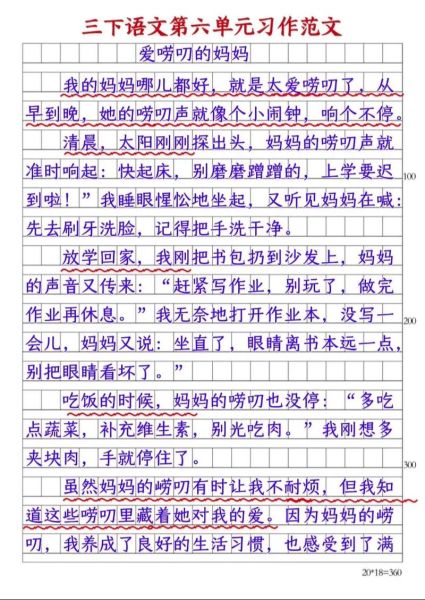 三下语文第六单元习作范文
爱唠叨的妈妈
我的妈妈哪儿都好，就是太爱唠叨了，从
早到晚，她的唠叨声就像个小闹钟，响个不停。
清晨，太阳刚刚探出头，妈妈的唠叨声就
准时响起：快起床，别磨磨蹭蹭的，上学要迟
到啦！”我睡眼惺忪地坐起，又听见妈妈在喊：
先去刷牙洗脸，记得把手洗干净。
放学回家，我刚把书包扔到沙发上，妈妈
的声音又传来：“赶紧写作业，别玩了，做完
作业再休息。”我无奈地打开作业本，没写一
会儿，妈妈又说：坐直了，眼睛离书本远一点，
别把眼睛看坏了。”
吃饭的时候，妈妈的唠叨也没停：“多吃
点蔬菜，补充维生素，别光吃肉。”我刚想多
夹块肉，手就停住了。
虽然妈妈的唠叨有时让我不耐烦，但我知
道这些唠叨里藏着她对我的爱。因为妈妈的唠
叨，我养成了良好的生活习惯，也感受到了满
100
200
300
20*18=360